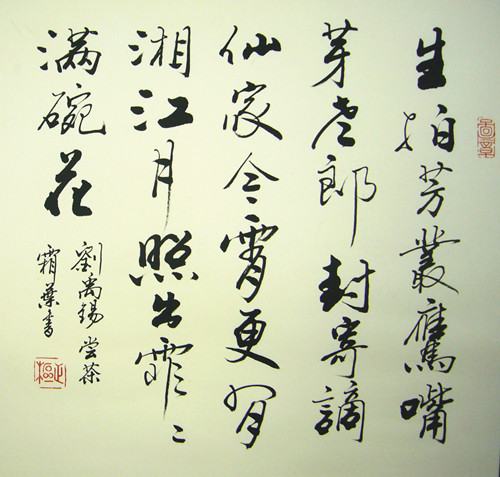 生拍芳叢鷹嘴
芽老郎封寄謫
仙家今霄更有
湘江月照出霏〻
满碗花
劉禹錫尝茶
霜葉書